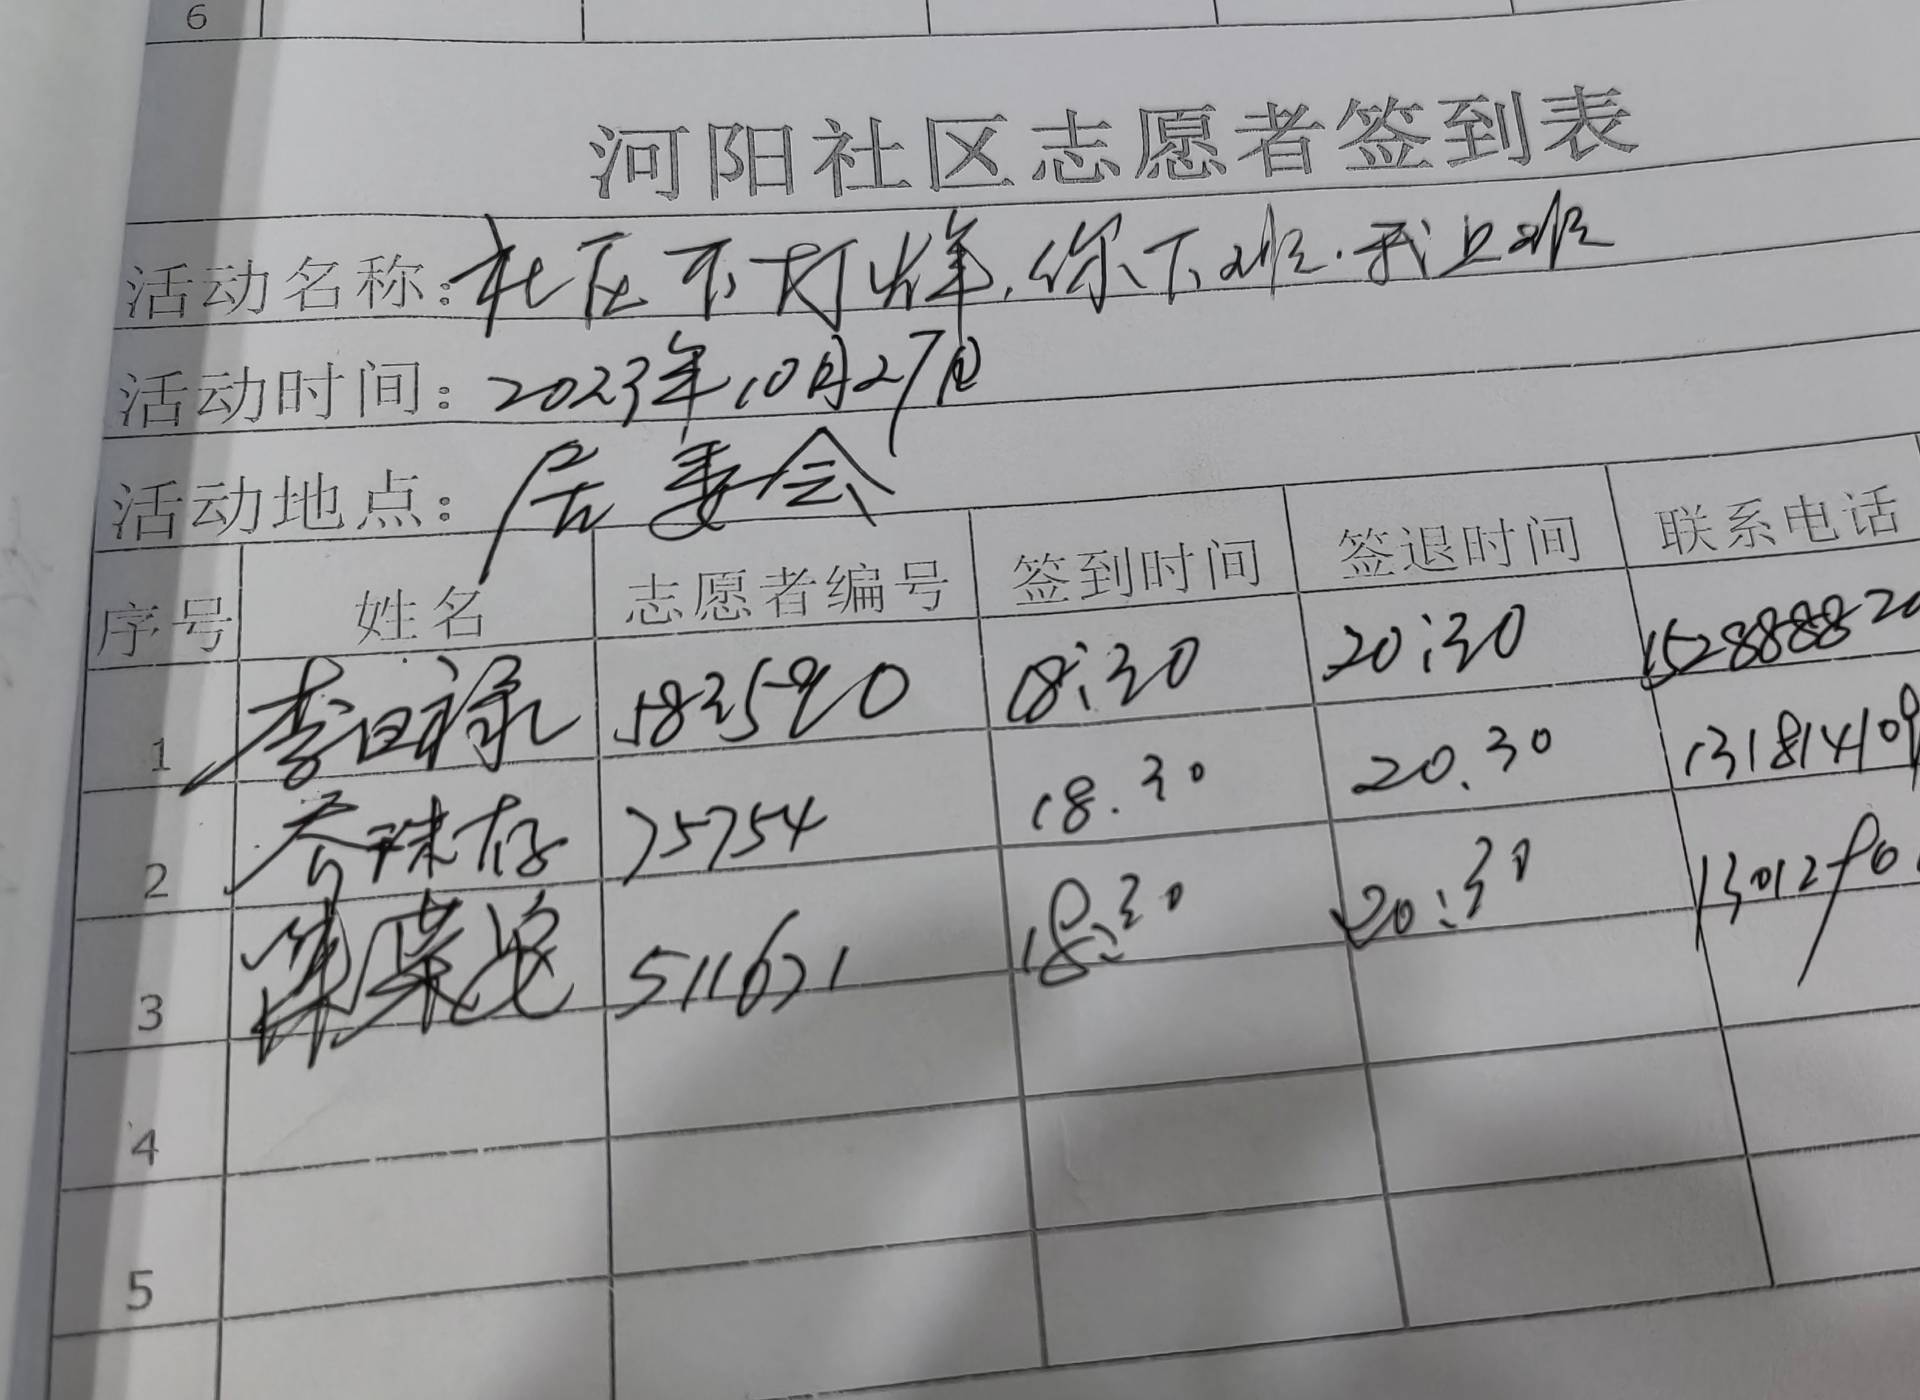 6
河阳社区志愿者签到表
活动名称:社区不打烊,你下班·我上班
活动时间:2023年10月27日
活动地点:居委会
序号 姓名 志愿者编号 签到时间 签退时间 联系电话
1 李日禄 583590 18:30 20:30 1528888820
2 乔珠存 75754 18.30 20.30 131814109
3 511671 18:30 20:30 13012900
4
5